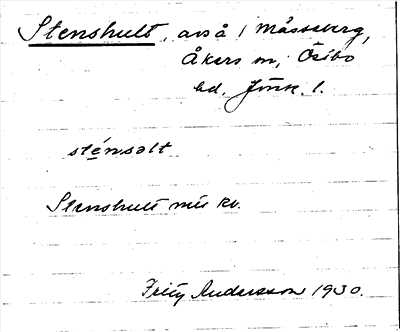 Stenshult, avs å 1 Måssaberg,
Åkers sn, Östbo
hd, Jönk. l.
sténsalt
Stenshult mis kv.
Fritz Andersson 1930.